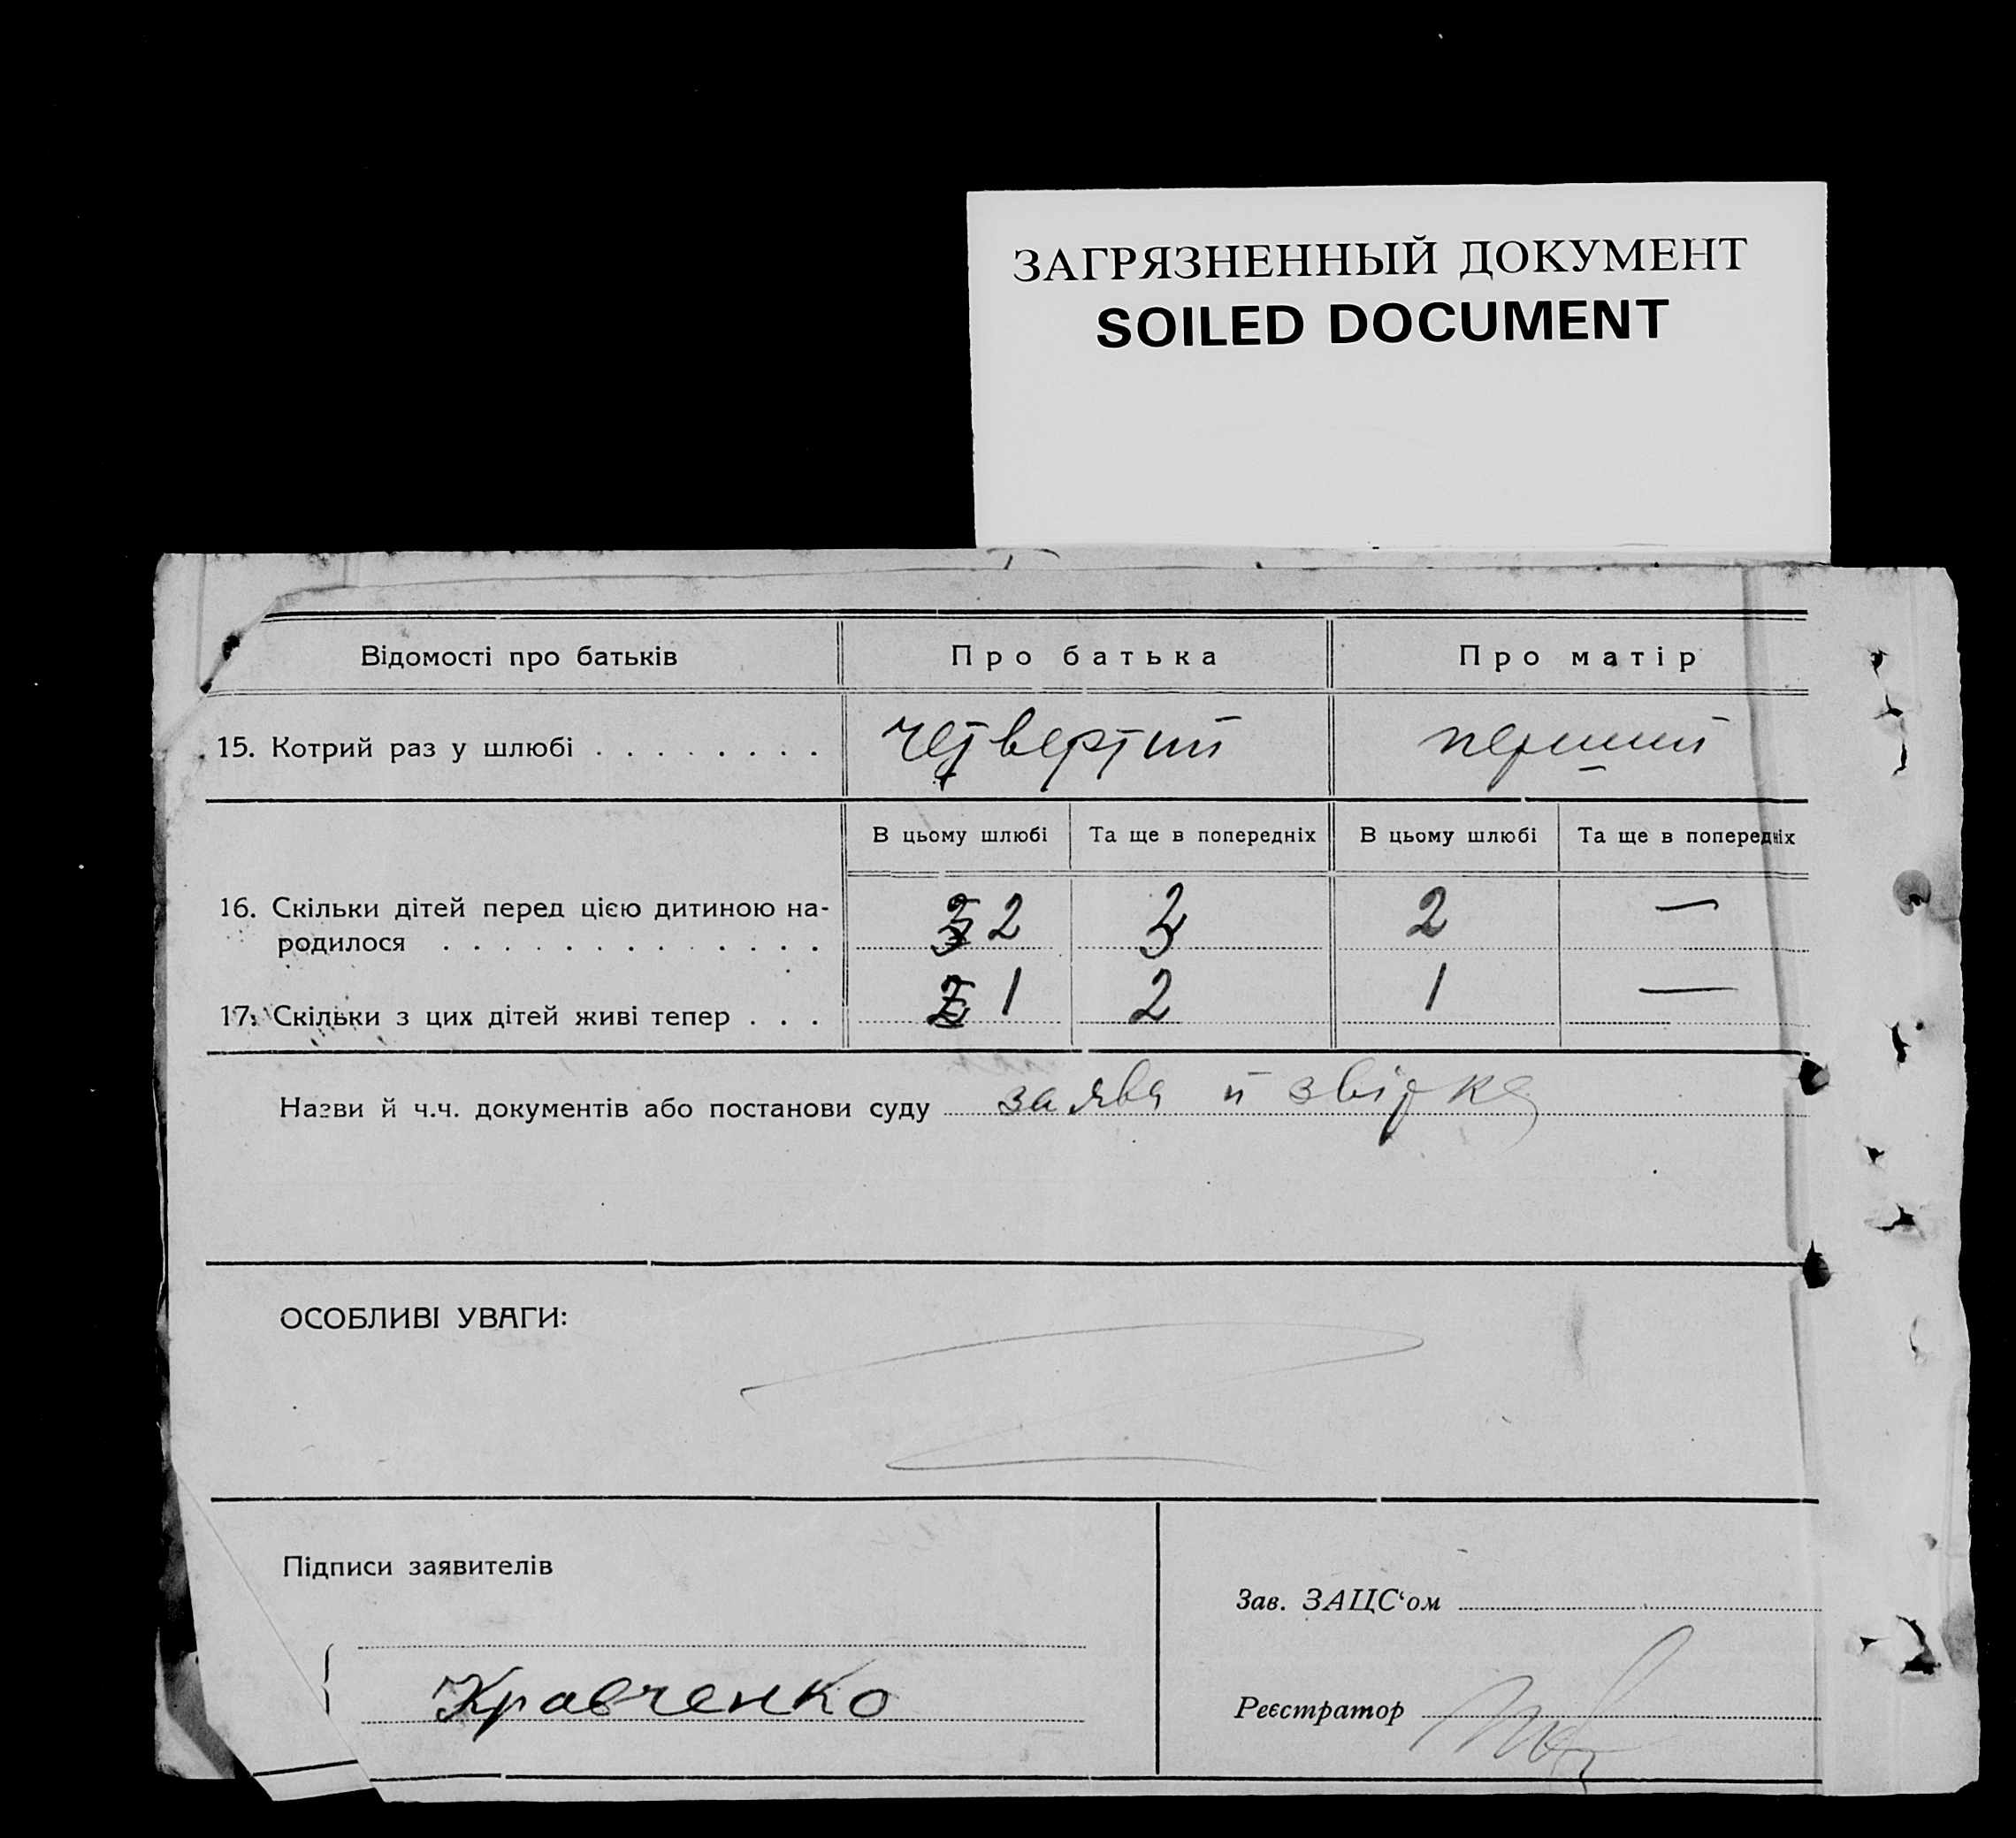 ЗАГРЯЗНЕННЫЙ ДОКУМЕНТ
SOILED DOCUMENT
Відомості про батьків Про батька Про матір
15. Котрий раз у шлюбі . . . . . . . . четвертий перший
В цьому шлюбі Та ще в попередніх В цьому шлюбі Та ще в попередніх
16. Скільки дітей перед цією дитиною на-
родилося . . . . . . . . . . . . . 2 3 2 —
17. Скільки з цих дітей живі тепер . . . 1 2 1 —
Назви й ч.ч. документів або постанови суду заява й звірка
ОСОБЛИВІ УВАГИ:
Підписи заявителів
Зав. ЗАЦС‘ом
Кравченко
Реєстратор